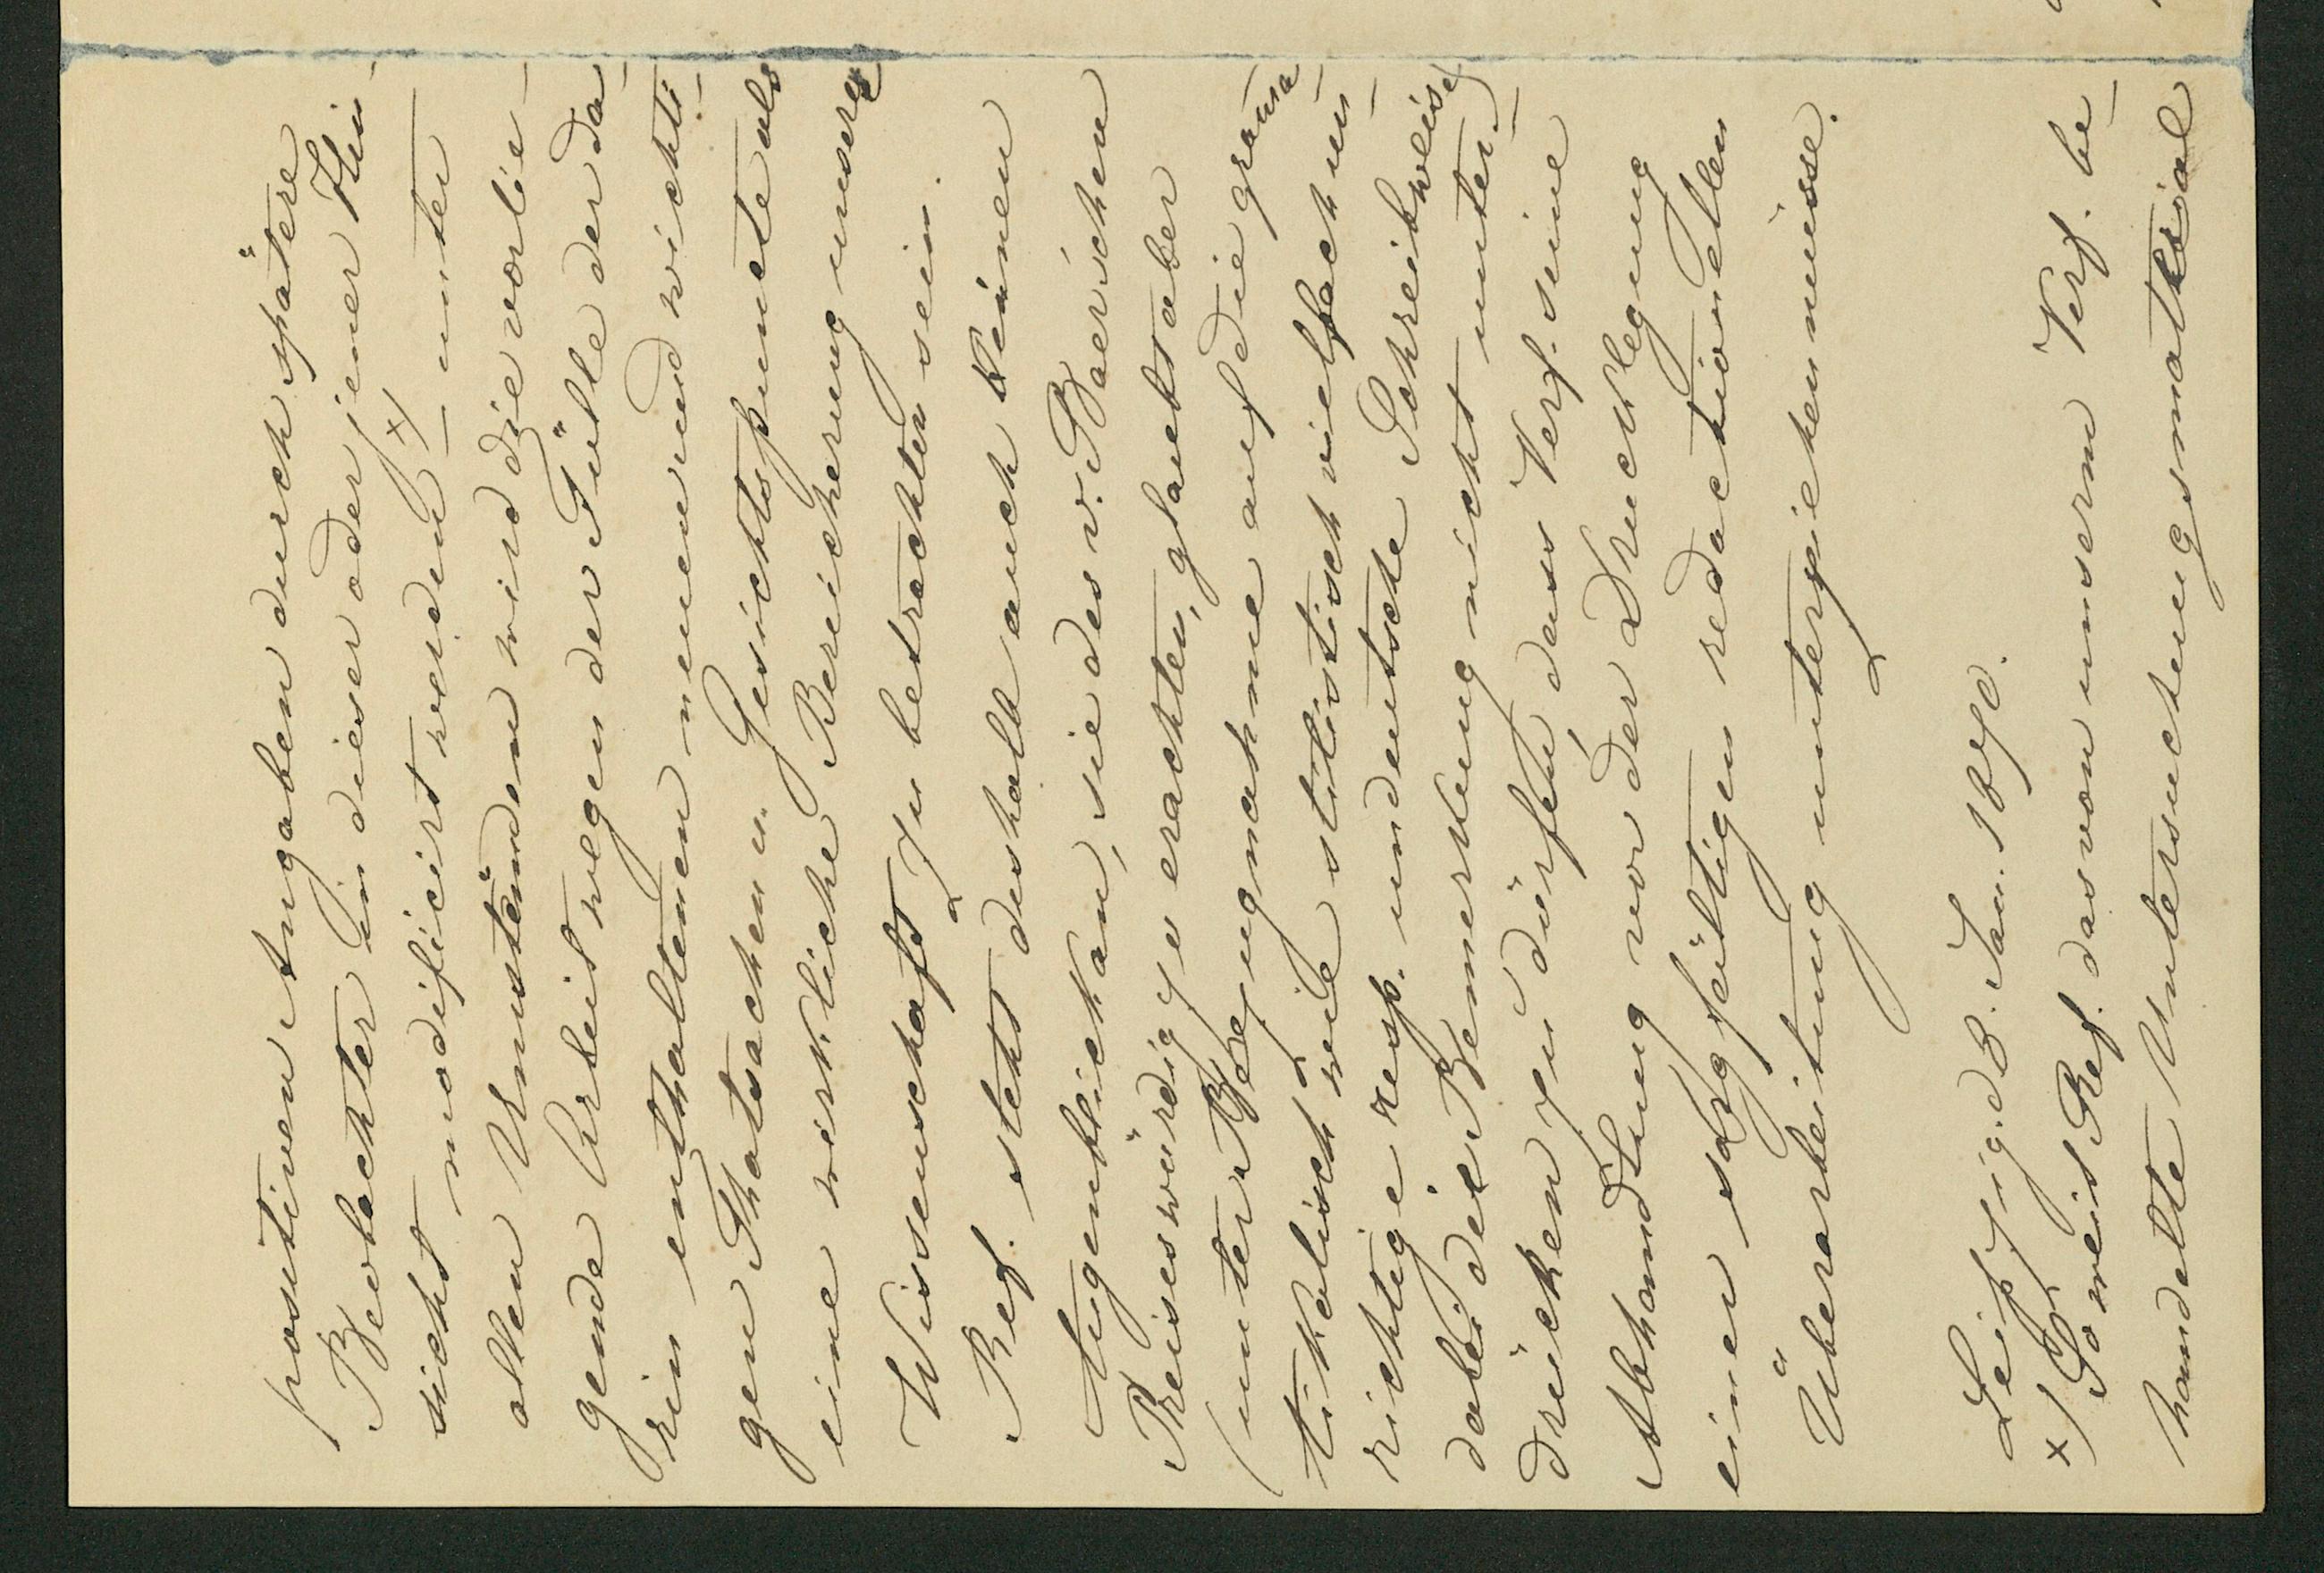 positiven Angaben durch spätere
Beobachter in dieser oder jener Hin-
sicht modificirt werden x) – unter
allen Umständen wird die vorlie-
gende Arbeit wegen der Fülle der da-
rin enthaltenen neuen und wichti-
gen Thatsachen u. Gesichtspuncte als
eine wirkliche Bereicherung unserer
Wissenschaft zu betrachten sein.
Ref. steht deshalb auch keinen
Augenblick an, sie des v. Baerschen
Preises würdig zu erachten, glaubt aber
(unter Bezugnahme auf die gram̅a-
tikalisch wie stilistisch vielfach un-
richtige resp. undeutsche Schreibweise)
dabei die Bemerkung nicht unter-
drücken zu dürfen, dass Verf. seine
Abhandlung vor der Drucklegung
einer sorgfältigen redactionellen
Überarbeitung unterziehen müsse.
Leipzig. d 3. Jan. 1890.
x) Soweit Ref. das von unserm Verf. be-
handelte Untersuchungsmaterial